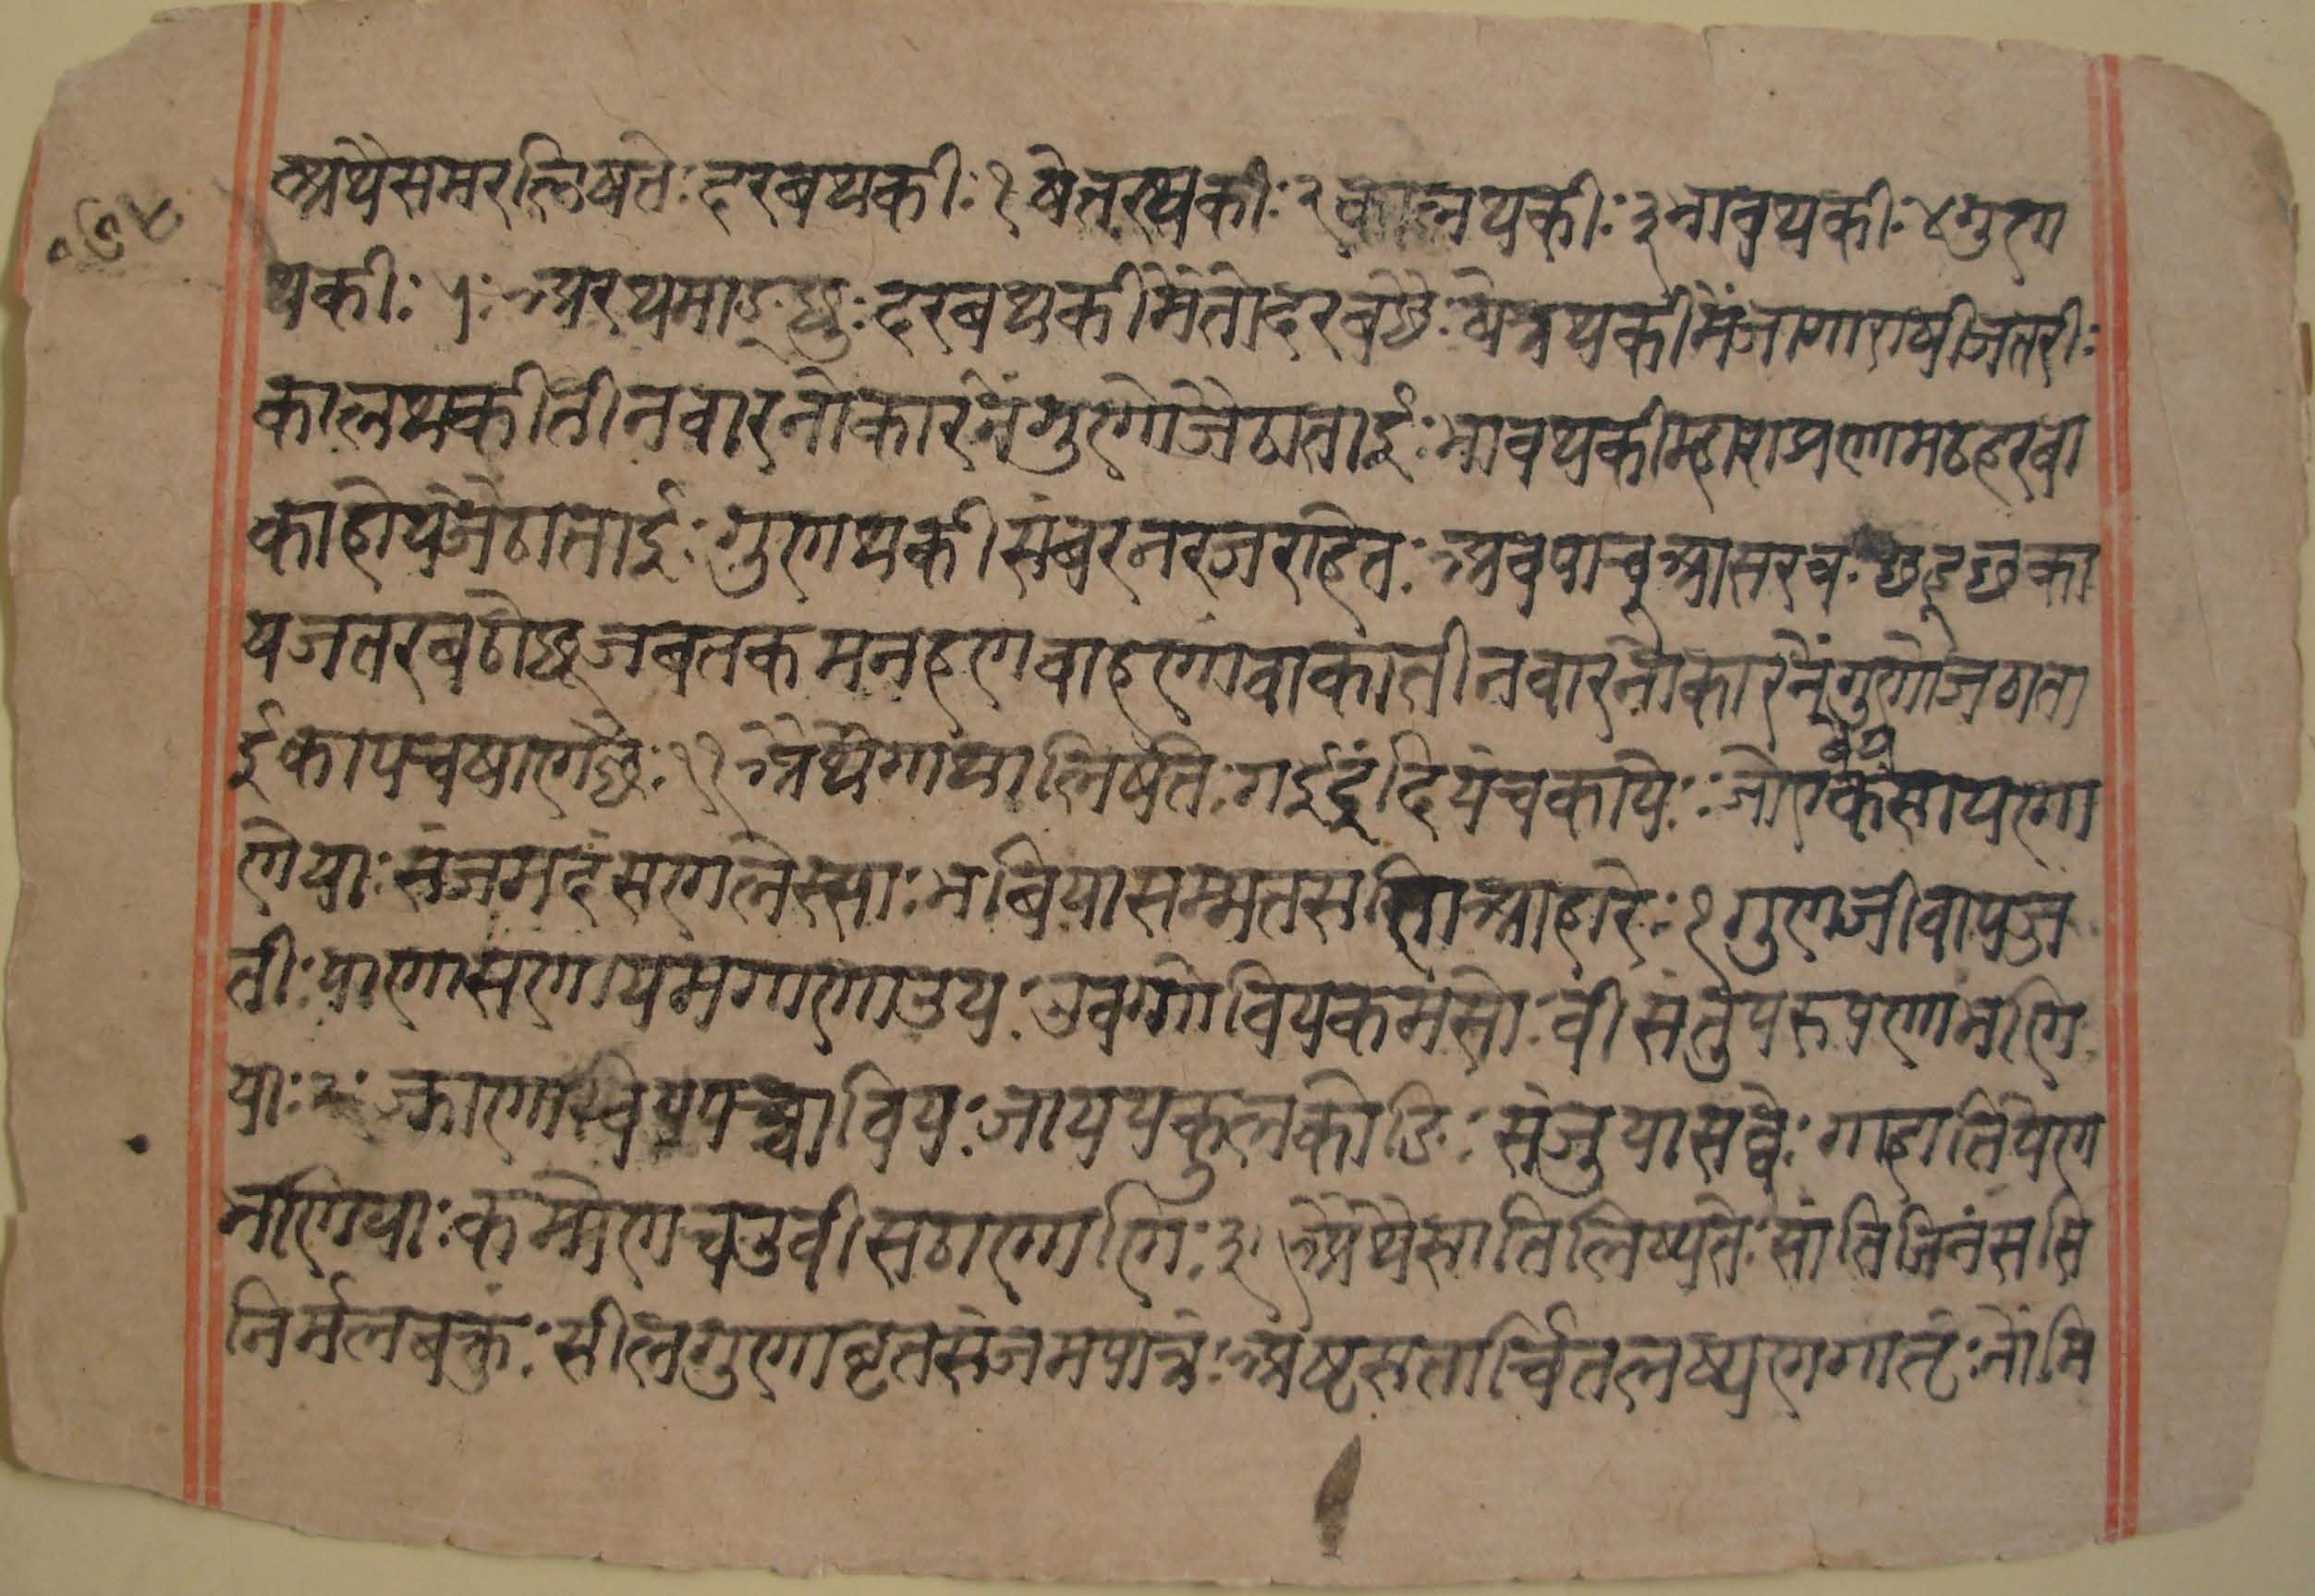 अथैसमरलिषते: दरबथकी: १ षेतरथकी: २ कालथकी: ३ भावथकी: ४ गुण
थकी: ५: अरथमाङ्छु: दरबथकीमैतोदरबछै: षेत्रथकीमैंजागाराषीजतरी:
कालथकीतीनवारनोकारनैंगुणोजैठाताई: भावथकीम्हाराप्रणामठहरबा
काहोयजैठाताई: गुणथकीसंबरनरजराहेत: अवपाचूआसरव: छहूछका
यजतरबठोछूजबतकमनहणवाहणावाकातीनवारनोकारनैंगुणोजठाता
ईकापचषाणछै: १ अथैगाथालिषते: गइइंदियंचकाये: जोए वेय कसायणा
णेया: संजमदंसणलेस्सा: भबियासम्मतसनिआहारे: १ गुणजीवापज
ती: पाणासंणायमगाणाउय: उवगोवियकमसो: वीसंतुपरुपणाभणि
या: २: झाणाविययपच्चाविय: जाययकुलकोडि: संजुयासव्वे: गाहातियेण
भणिया: कम्मेणचउवीसठाणाणि: ३ अथैसातिलिष्यते: सांतिजिनंससि
निर्मलबक्तं: सीलगुणाबृतसंजमपात्रं: अष्टसतार्चितलष्यणगातं: नौंमि